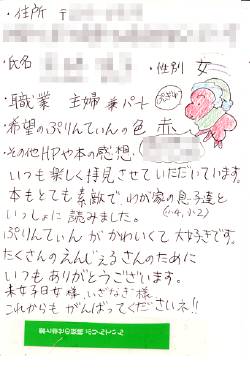 ・住所 〒
・氏名 ・性別 女
・職業 主婦兼パート
・希望のぷりんてぃんの色 赤
・その他HPや本の感想
いつも楽しく拝見させていただいています。
本もとても素敵で、わが家の息子達と
いっしょに読みました。(小4、小2)
ぷりんてぃんがかわいくて大好きです。
たくさんのえんじぇるさんのために
いつもありがとうございます。
これからもがんばってくださいネ!!